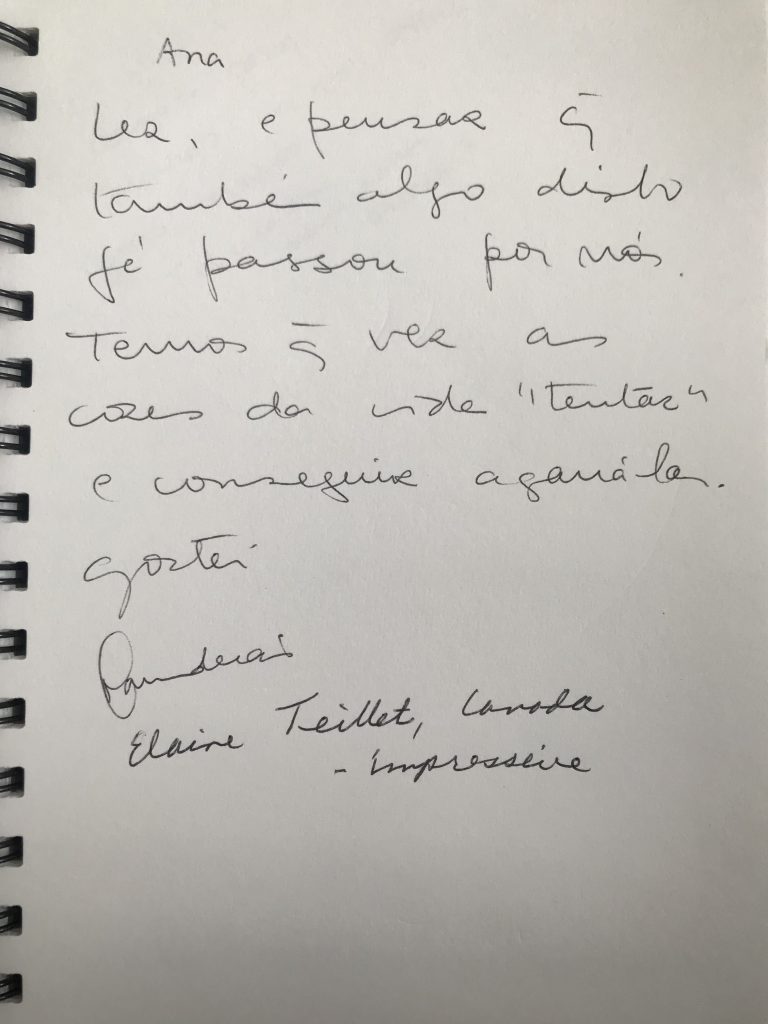 Ana
Ler, e pensar q̄
também algo disto
já passou por nós.
Temos q̄ ver as
cores da vida "tentar"
e conseguir agarrá-las.
gostei
Elaine Teillet, Canada
- impressive